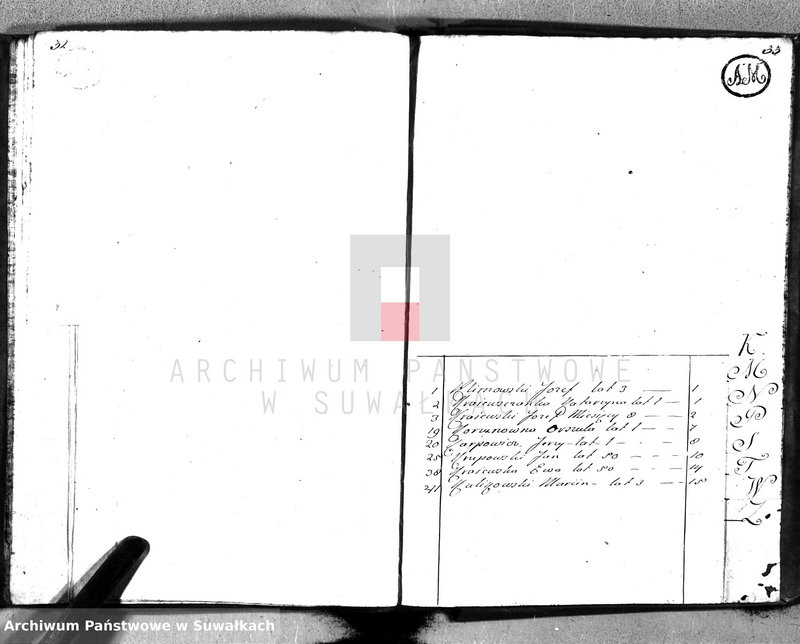 32
33
AM
ARCHIWUM PAŃSTWOWE
W SUWAŁKACH
K
M
N
P
S
T
W
Z
1 Klimowski Jozef lat 3 — 1
2 Katarzyna lat 1 — 1
3 Kraiewski Jozef Miesięcy 8 — 2
19 Orszula lat 1 — 7
20 Karpowicz Jerzy lat 1 — 8
25 Krupowski Jan lat 50 — 10
38 Kraiewska Ewa lat 50 — 14
41 Marcin lat 3 — 15
Archiwum Państwowe w Suwałkach